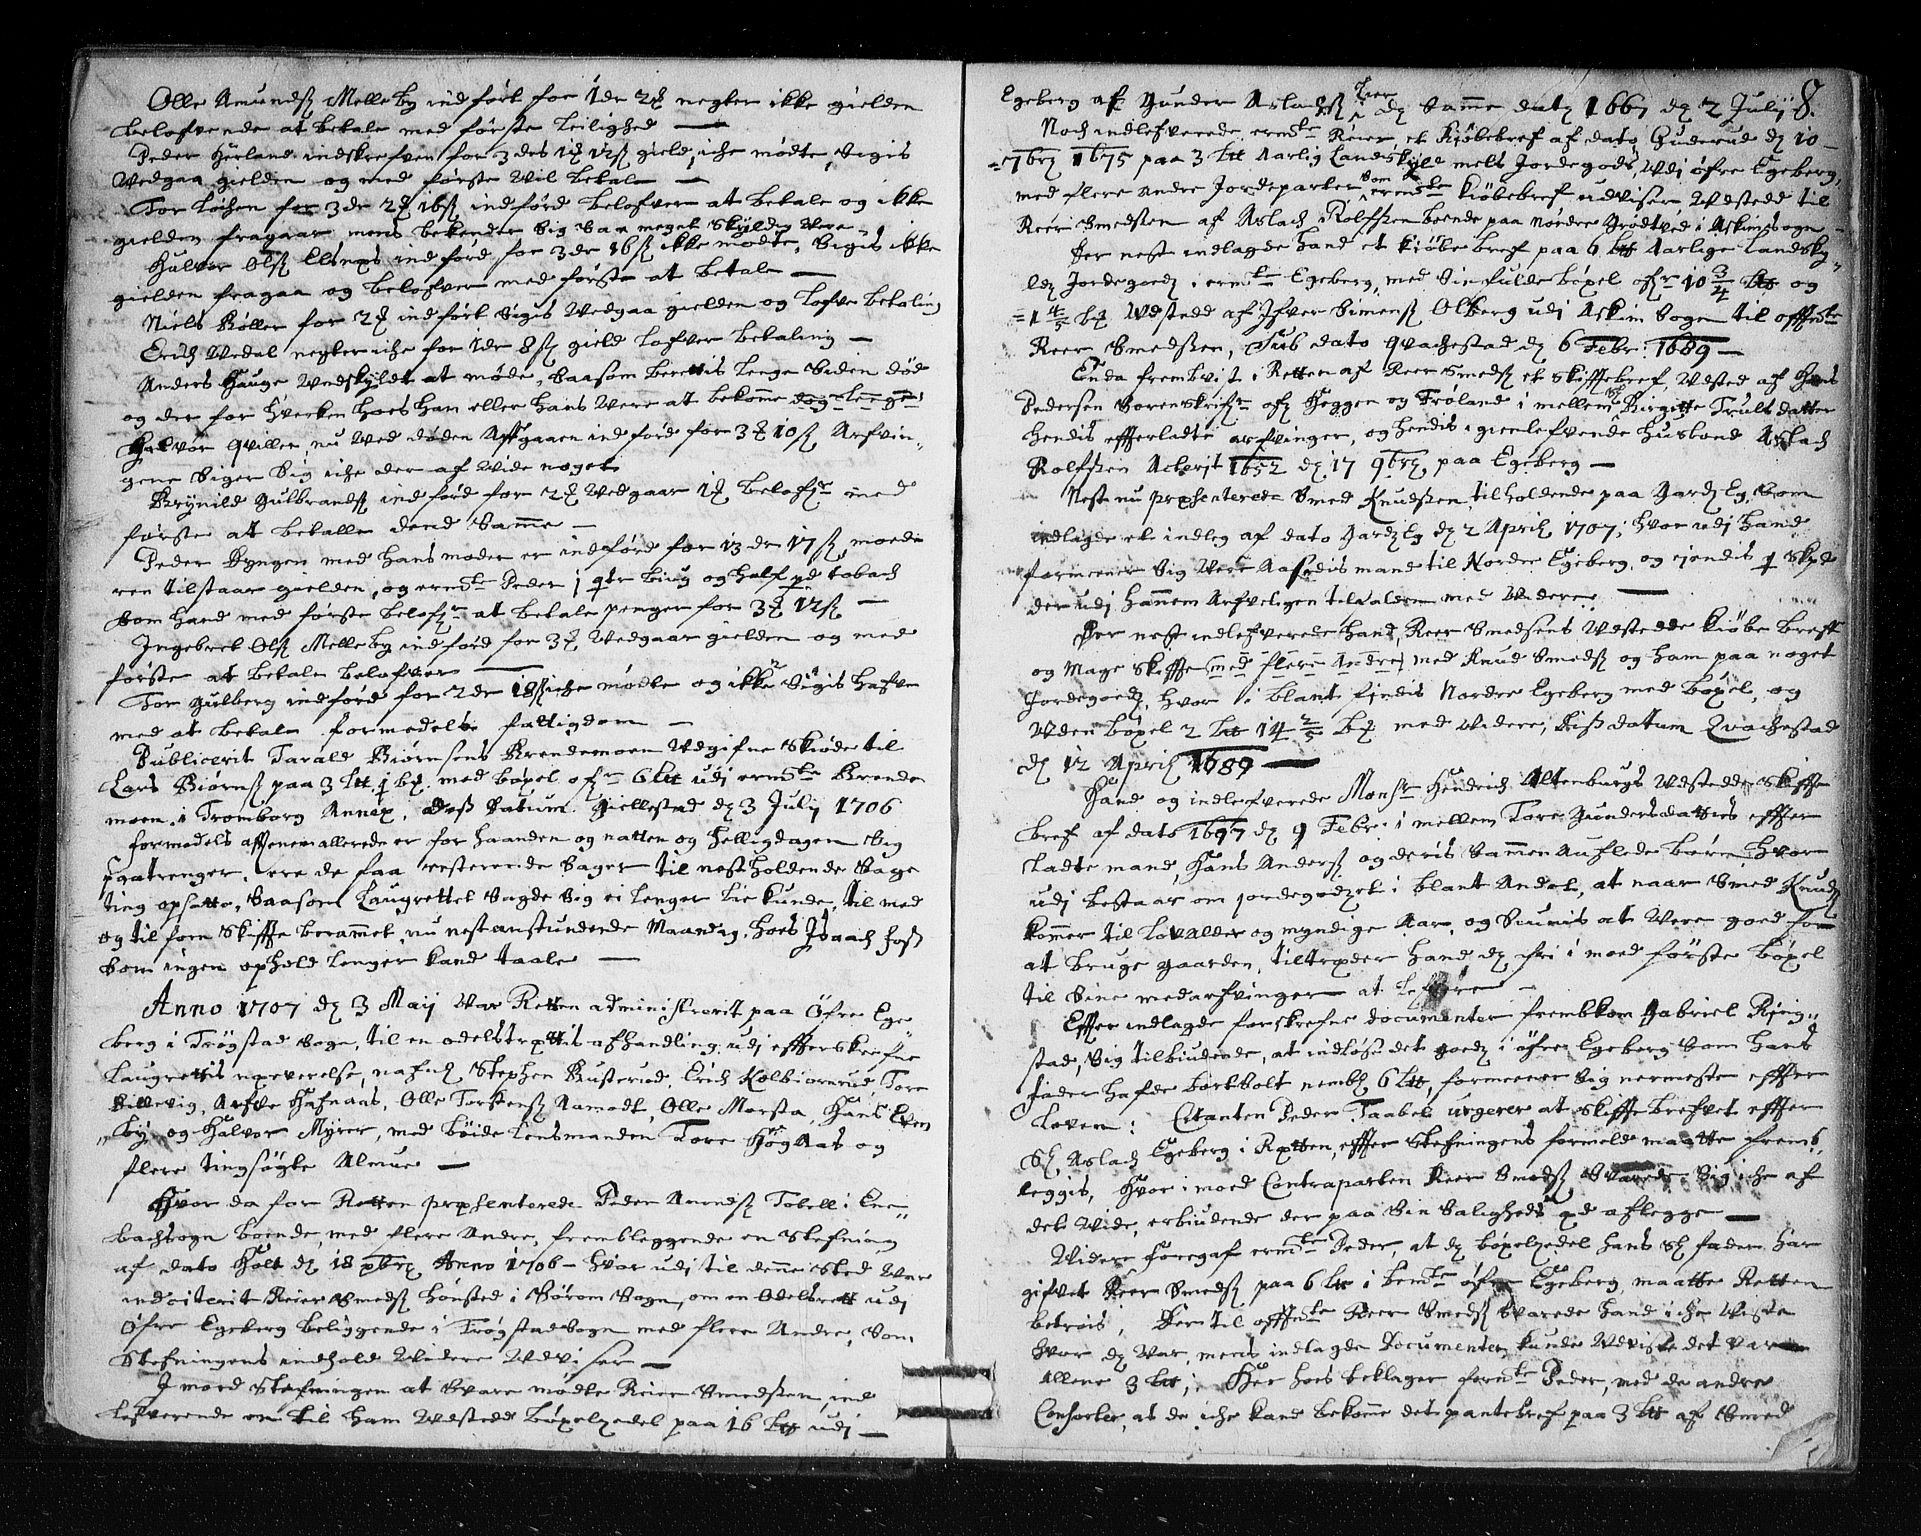 Olle Amunds: Melleby indført for 1 dr 2 negter ikke gielden
belofvende at betale med første leilighed —
Peder Herland indskrefven for 3 drs 12ß gield, iche mødte, Sigis
Vedgaa gielden og med første vil betale —
Tor Lochen for 3 dr 2 16ß indførd belofver at betale og ikke
gielden fragaar mens bekiender Sig Saa meget Skyldig Vere
Halvor Olß Elsnes indførd for 3 dr 16ß ikke mødte, Sigis ikke
gielden fragaa og belofver med første at betale —
Niels Røller for 2 indført Sigis Vedgaa gielden og lofve betaling
Erich Vedal negter iche for 1 dr 8ß gield lofver betaling —
Anders Hauge Undskyldt at møde, Saasom berettis lenge Siden død
og der for hverken hoes ham eller hans Vere at bekomme
Halvor qviller, nu Ved døden Affgaaen indførd for 3 10ß Arfvin-
gene Siger Sig iche der af vide noget
Brynild Gulbrandß indførd for 2 Vedgaar 1 belofr med
første at betalle dend Samme —
Peder Dyngen med hans moder er indførd for 13 dr 17ß, moede
ren tilstaar gielden, og ermte Peder 1 qtr biug og half pd tobach
Som hand med første belofr at betale penger for 3 12ß —
Ingebret Olß Melleby indførd for 3 Vedgaar gielden og med
første at betale belofver —
Tor Gulberg indførd for 2 dr 18ß iche mødte og ikke Sigis hafve
med at betale formedelst fattigdom —
Publicerit Tarald Biørnsens Brendemoen Udgifne Skiøde til
Lars Biørnß paa 3 med bøxel ofr 6 udj ermte Brende
moen i Tromborg Annex, dass Datum Gillestad d 3 July 1706
formedels afftenen allerede er for haanden og natten og helligdagen Sig
paatrenger, ere de faa resterende Sager til nest holdende Sage
ting opsatte, Saasom Laugrettet Sagde Sig ei lenger bie kunde, til med
og til form Skiffte berammet, nu nestanstundende Maandag, hoes Isaach foss
Som ingen ophold lenger kand taale —
Anno 1707 d 3 Maij Var Retten administrerit paa Øfre Ege
berg i Trøgstad Sogn, til en odelstrættis afhandling udj effterskrefne
Laugrettis nærverelse, nafnl Stephen Rusterud, Erich Kolbiørnrud Tore
Billevig, Arfve Hafnaas, Olle Torstenß Aamodt, Olle Morsta, Hans Even
by og Halvor Myrer, med bøide Lensmanden Tore Høgaas og
flere tingsøgte Almue —
Hvor da for Retten præsenterede Peder Amundß Tobell i Ene
bachsogn boende, med flere Andre, frembleggende en Stefning
af dato Holt d 18 xbri Anno 1706 - hvor udj til denne Sted Var
indciterit Reier Smedß hønsted i Sørom Sogn, om en Odelsrett udj
Øfre Egeberg beliggende i Trøgstad Sogn med flere Andre, Som
Stefningens indhold Videre Udviser —
I moed Stefningen at Svare mødte Reier Smedßen, ind
lefverende en til ham Udstedd bøxelzedel paa 16 udj —
8.
Egeberg af Gunder Aslachß d Samme dato 1667 d 2 Julij
Noch indlefverede ermte Reier et Kiøbebref af dato Guderud d 10
7bri 1675 paa 3 Aarlig Landskyld mels Jordegods, Udj øfre Egeberg,
med flere andre Jordeparter Som ermte kiøbebref udviser Udstedd til
Reier Smedsen af Aslach Rolfßen boende paa Nordre Grødtved i Askimsogn
Der nest indlagde hand et kiøbe bref paa 6 Aarlige landsky
ld Jordegods i ermte Egeberg, med Sin fulde bøxel ofr 10 3/4 og
1 4/5 b Udstedd af Ifver Simensß Olberg udj Askim Sogn til offte
Reer Smedßen, Sub dato Qvachestad d 6 Febr: 1689 —
Enda frembvist i Retten af Reer Smedß et Skifftebref, Udsted af Hans
Pedersen Sorenskrifr ofr Heggen og Frøland i mellem Birgitte Truls datter
hendis effterladte arfvinger, og hendis gienlefvende husbond Aslach
Rolfßen Acterit 1652 d 17 9bri, paa Egeberg —
Nest nu præsenterede Smed Knudßen, tilholdende paa Gard Eg, Som
indlagde et indleg af dato Gard Eg d 2 April 1707, hvor udj hand
formeener Sig Vere Aasedis mand til Nordre Egeberg, og
der udj hannem Arfveligen tilfalden med Videre —
Der nest indlefverede hand, Reer Smedsens Udstedde kiøbe breff
og Mage Skiffte med flere Andre med Knud Smedß og ham paa noget
Jordegods, hvor i blant findis Nordre Egeberg med bøxel, og
Uden bøxel 2 14 2/5 b med videre, diß datum Qvachestad
d 12 April 1689 —
Hand og indlefverede Monsr Hendrich Altenburgs Udstedde Skiffte
bref af dato 1697 d 9 Febr: i mellem Tore Gundersdatters effter
ladte mand, Hans Anderß og deris Sammen Auflede børn, hvor
udj bestaar om jordegodzet i blant Andet, at naar Smed Knudß
kommer til Lovalder og myndige Aar, og Siunis at Vere goed for
at bruge gaarden, tiltræder hand d fri i moed første bøxel
til Sine medarfvinger at
Effter indlagde forskrefne documenter frembkom Gabriel Ring-
stad, Sig tilbiudende, at indløse det goedz i øfre Egeberg Som hans
fader hafde bortsolt nembl 6, formeener Sig nermeste effter
Loven: Citanten Peder Taabel urgerer at Skifftebrefvet effter
Sl Aslach Egeberg i Retten, effter Stefningens formeld maatte frem
leggis, hvor i moed Contraparten Reer Smedß Svarede Sig iche af
det vide, erbiudende der paa Sin Saligheds ed aflegge —
Videre foregaf ermte Peder, at d bøxelzedel hans Sl fader har
gifvet Reer Smedß paa 6 i bemte øfre Egeberg, maatte Retten
betrois, Her til offte Reer Smedß Svarede hand iche Viste
hvor d Var, mens indlagde Documenter kunde Udviste det var
Allene 3; Her hoes beklager formte Peder, med de andre
Consorter, at de iche kand bekomme det pantebref paa 3 af Smed